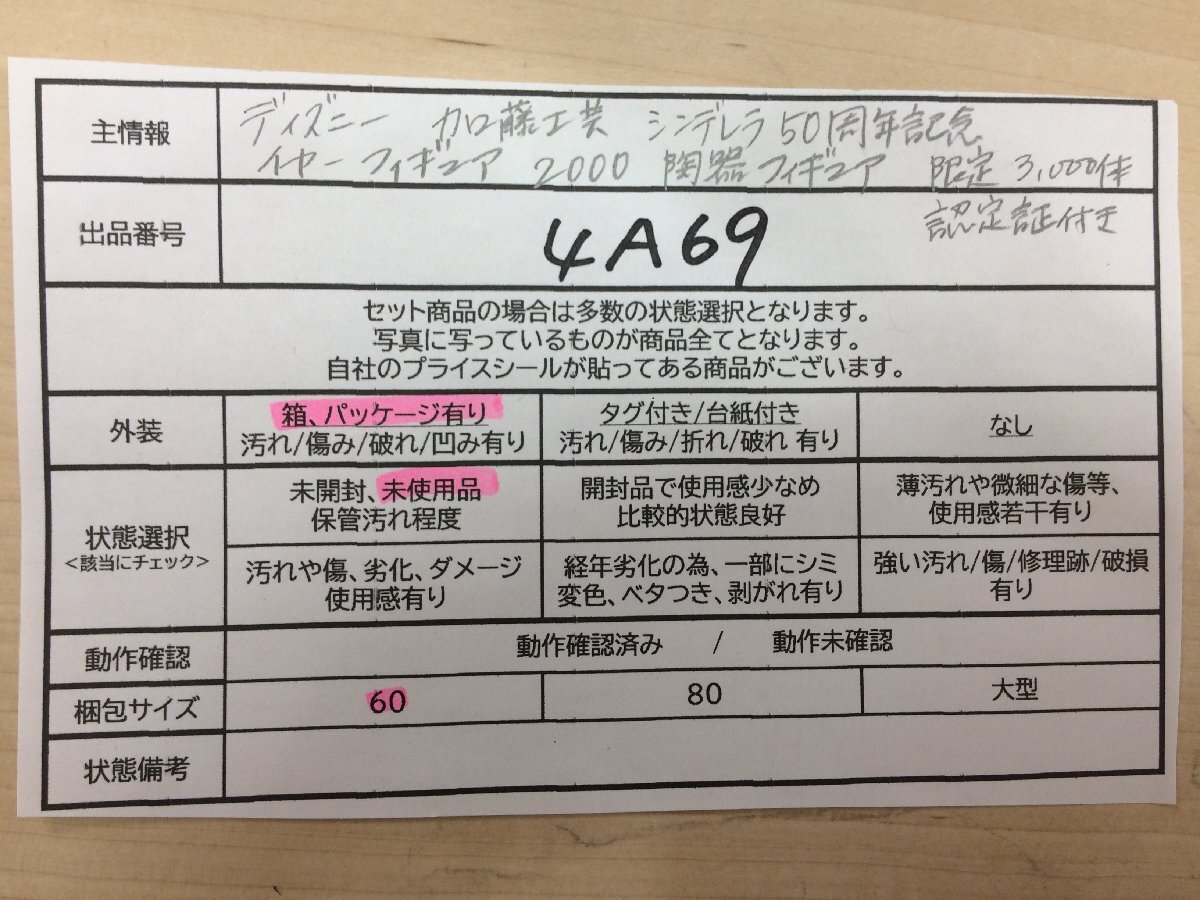 主情報
ディズニー 加藤工芸 シンデレラ50周年記念
イヤーフィギュア 2000 陶器フィギュア 限定 3,000体
認定証付き
出品番号
4A69
セット商品の場合は多数の状態選択となります。
写真に写っているものが商品全てとなります。
自社のプライスシールが貼ってある商品がございます。
外装
箱、パッケージ有り
汚れ/傷み/破れ/凹み有り
タグ付き/台紙付き
汚れ/傷み/折れ/破れ 有り
なし
状態選択
<該当にチェック>
未開封、未使用品
保管汚れ程度
開封品で使用感少なめ
比較的状態良好
薄汚れや微細な傷等、
使用感若干有り
汚れや傷、劣化、ダメージ
使用感有り
経年劣化の為、一部にシミ
変色、ベタつき、剥がれ有り
強い汚れ/傷/修理跡/破損
有り
動作確認
動作確認済み / 動作未確認
梱包サイズ
60
80
大型
状態備考